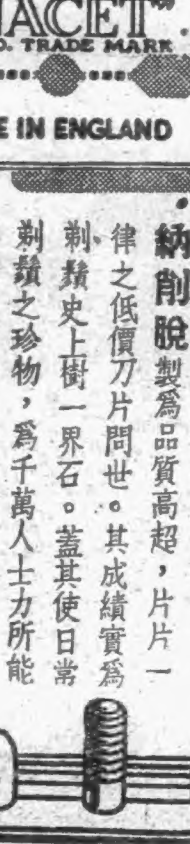 NACET”
D. TRADE MARK
E IN ENGLAND
納削脫製爲品質高超，片片一
律之低價刀片問世。其成績實爲
剃鬚史上樹一界石。蓋其使日常
剃鬚之珍物，爲千萬人士力所能